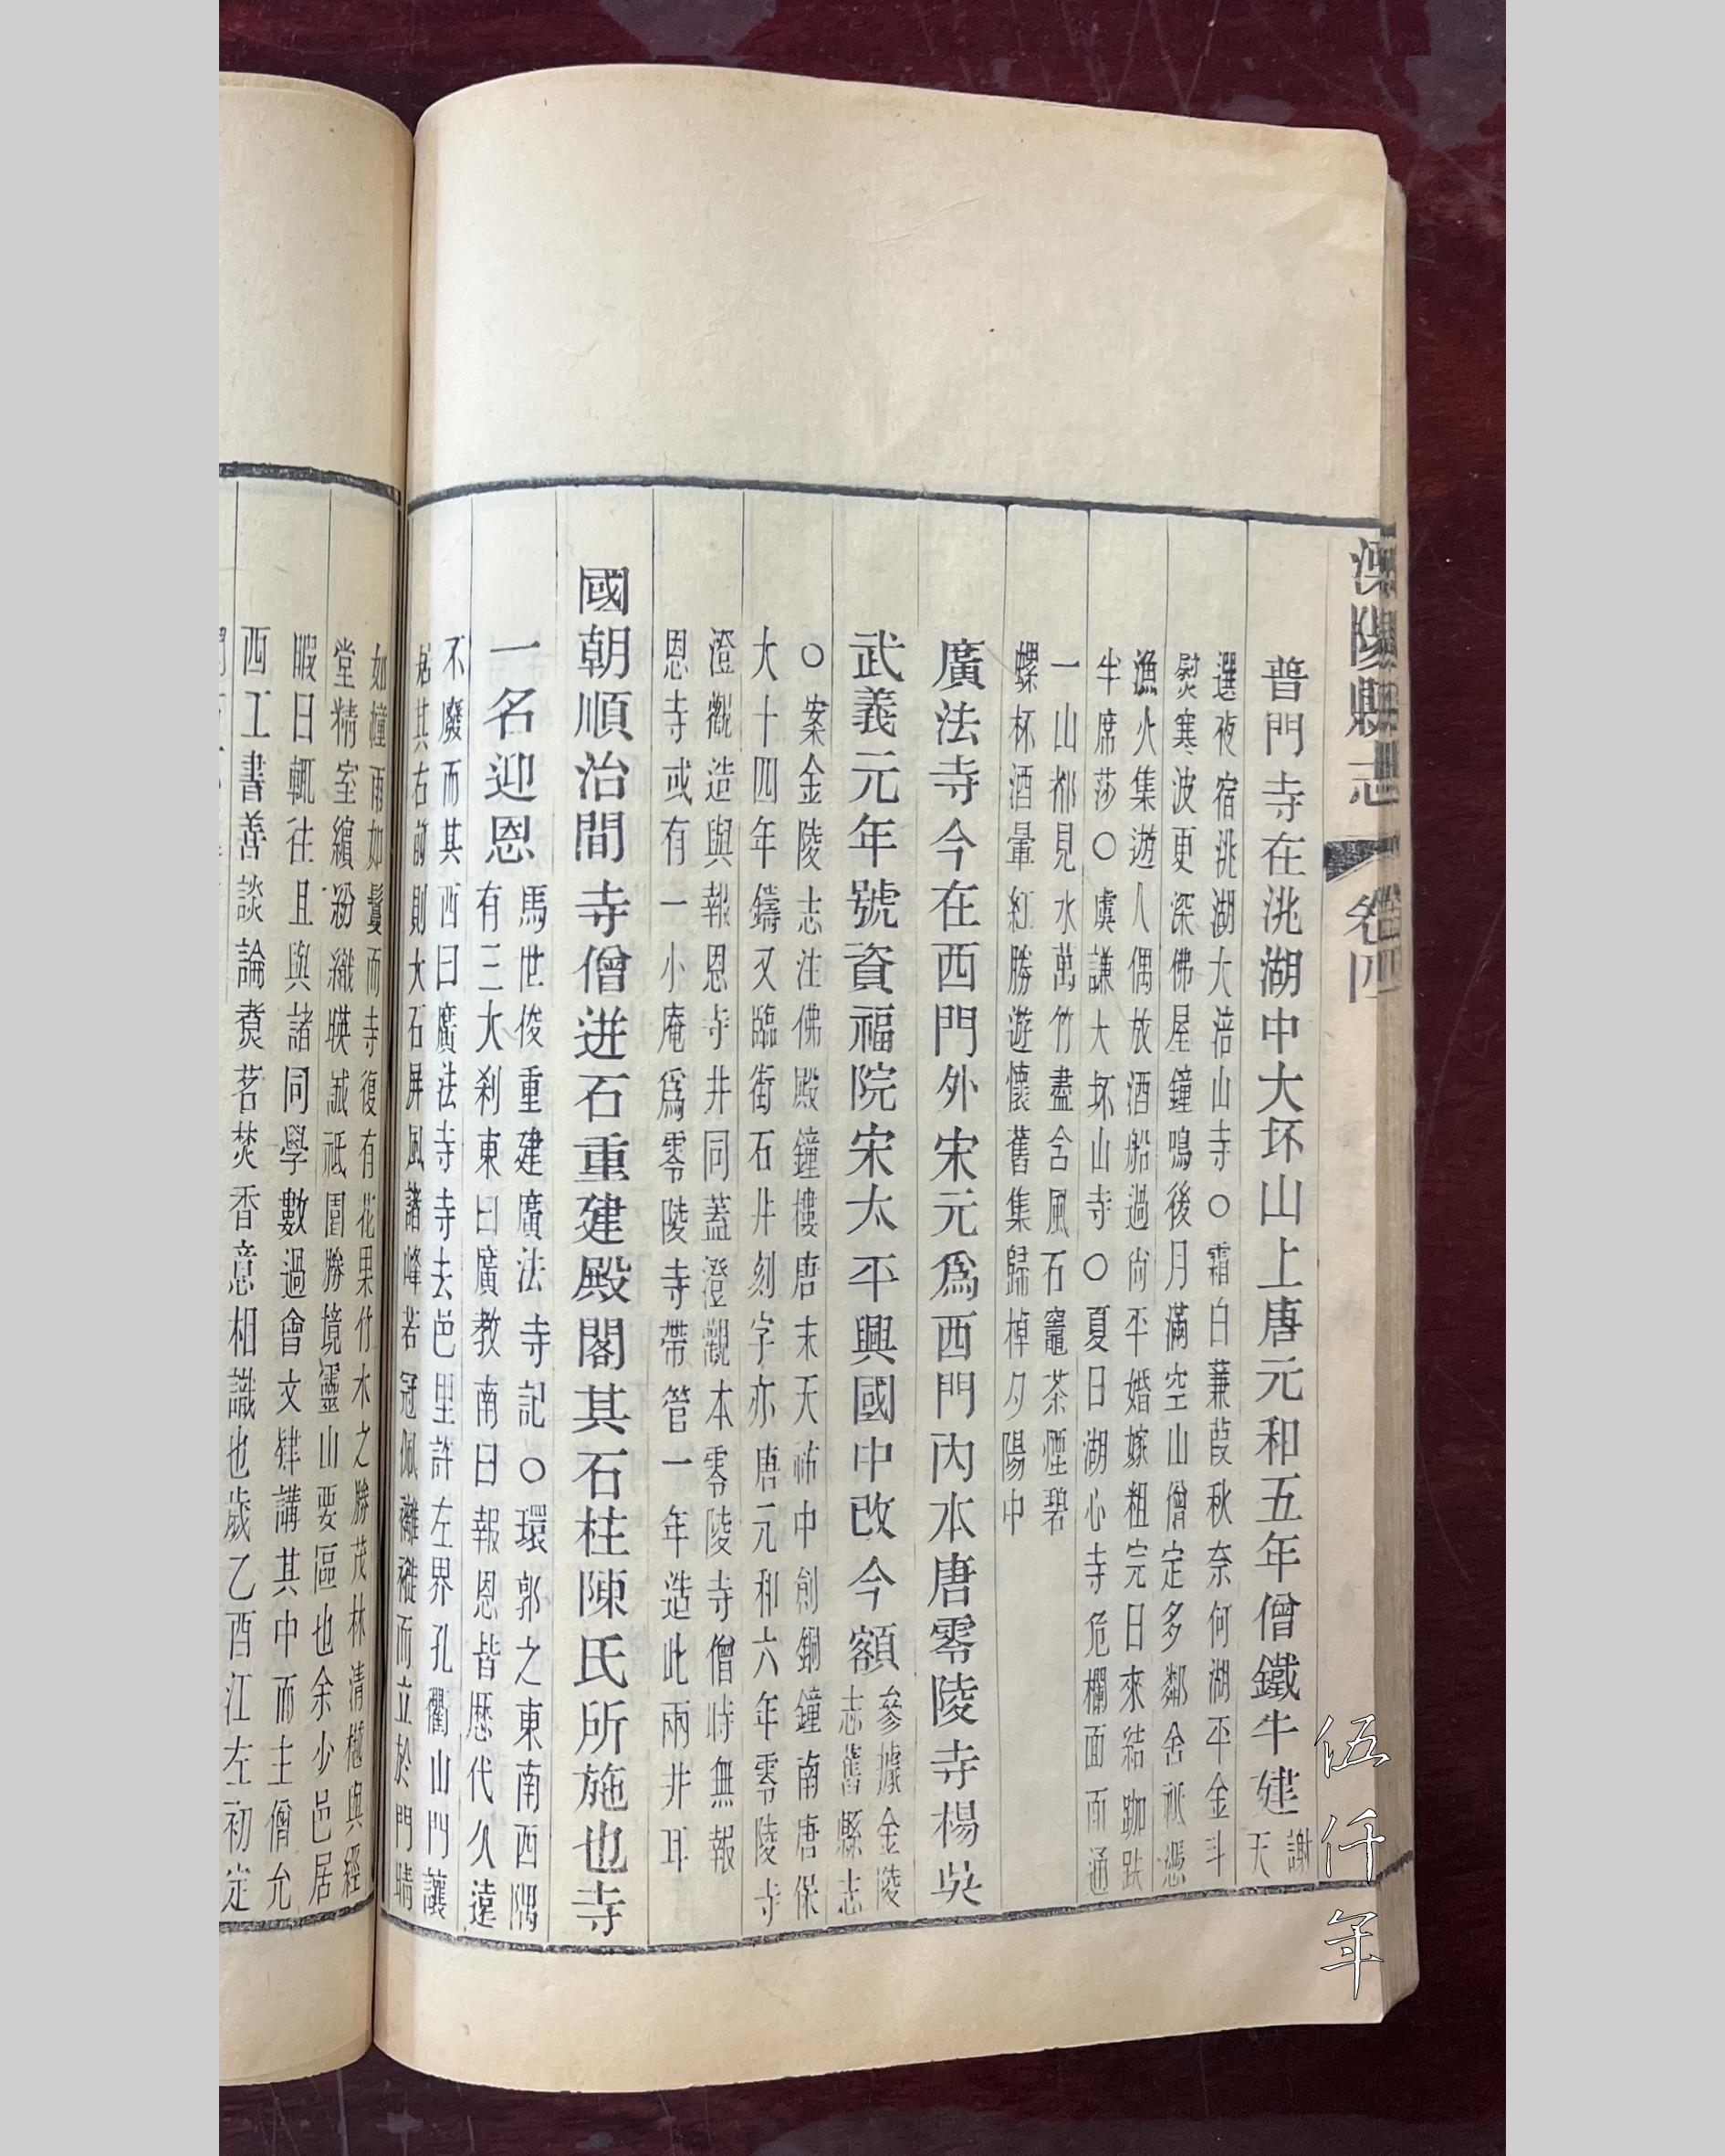 溧陽縣志 卷四
普門寺在洮湖中大坯山上唐元和五年僧鐵牛建謝天
選夜宿洮湖大涪山寺○霜白蒹葭秋奈何湖平金斗
熨寒波更深佛屋鐘鳴後月滿空山僧定多鄰舍祇憑
漁火集遊人偶放酒船過尚平婚嫁粗完日來結跏趺
半席莎○虞謙大坯山寺○夏日湖心寺危欄面面通
一山都見水萬竹盡含風石竈茶煙碧
螺杯酒暈紅勝遊懷舊集歸棹夕陽中
廣法寺今在西門外宋元爲西門內本唐零陵寺楊吳
武義元年號資福院宋太平興國中改今額參據金陵志舊縣志
○案金陵志注佛殿鐘樓唐末天祐中創銅鐘南唐保
大十四年鑄又臨街石井刻字亦唐元和六年零陵寺
澄觀造與報恩寺井同蓋澄觀本零陵寺僧時無報
恩寺或有一小庵爲零陵寺帶管一年造此兩井耳
國朝順治間寺僧迸石重建殿閣其石柱陳氏所施也寺
一名迎恩
馬世俊重建廣法寺記○環郭之東南西隅
有三大刹東曰廣教南曰報恩皆歷代久遠
不廢而其西曰廣法寺寺去邑里許左界孔衢山門讓
其右前則大石屏風諸峰若冠佩襳褷而立於門晴
如幢雨如鬟而寺復有花果竹木之勝茂林清樾與經
堂精室繽紛織暎誠祇園勝境靈山要區也余少邑居
暇日輒往且與諸同學數過會文肄講其中而主僧允
西工書善談論煑茗焚香意相識也歲乙酉江左初定
伍仟年